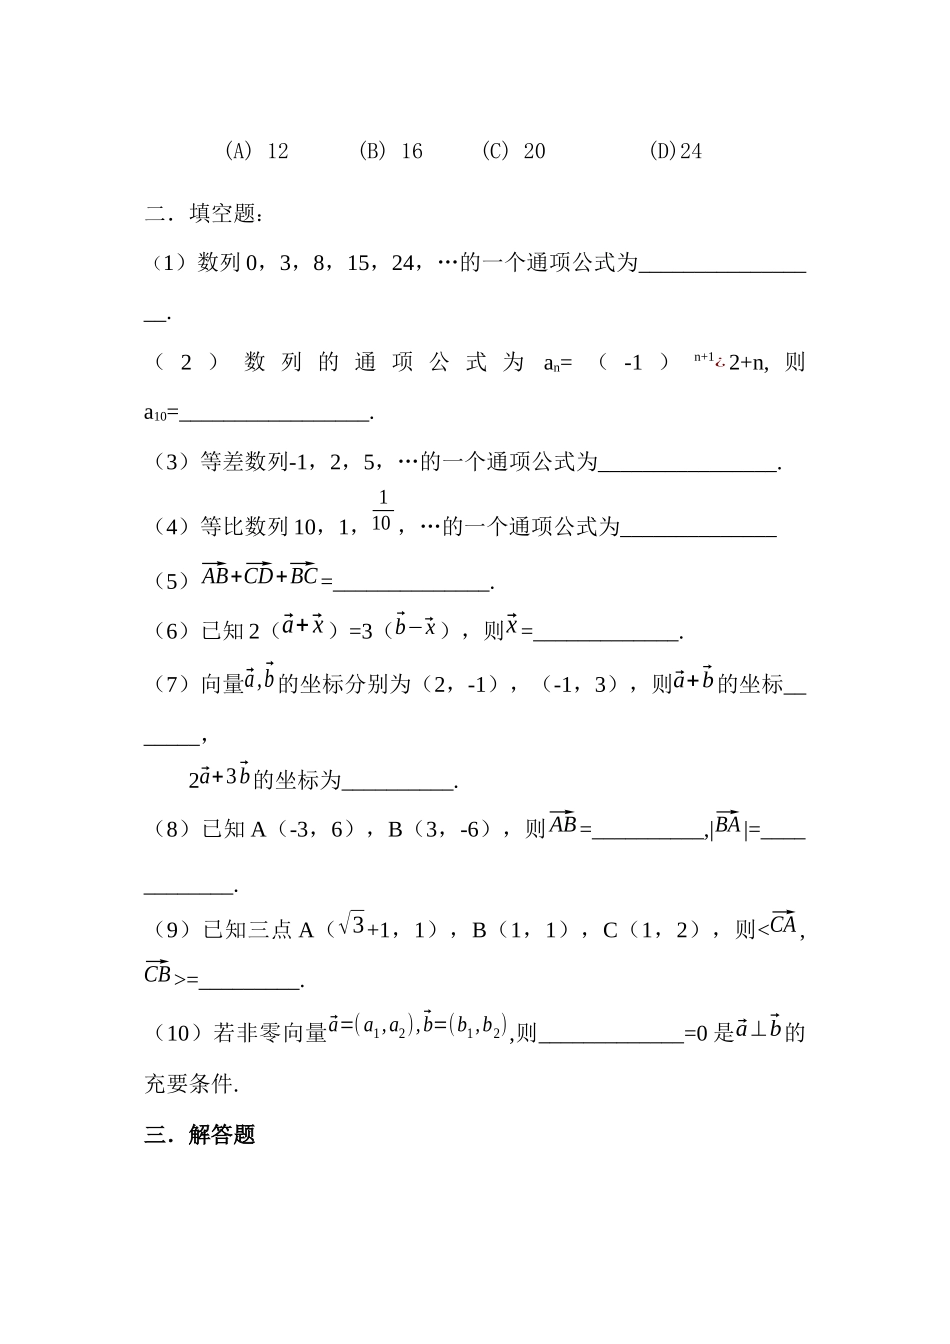 (A) 12 (B) 16 (C) 20 (D)24
二．填空题：
（1）数列 0，3，8，15，24，…的一个通项公式为_______________
__.
（ 2 ） 数 列 的 通 项 公 式 为 an= （ -1 ） n+1¿ 2+n, 则
a10=_________________.
（3）等差数列-1，2，5，…的一个通项公式为________________.
（4）等比数列 10，1，1/10，…的一个通项公式为______________
（5）\overrightarrow{AB}+\overrightarrow{CD}+\overrightarrow{BC}=______________.
（6）已知 2（\vec{a}+\vec{x}）=3（\vec{b}−\vec{x}），则\vec{x}=_____________.
（7）向量\vec{a},\vec{b}的坐标分别为（2，-1），（-1，3），则\vec{a}+\vec{b}的坐标__
_____，
2\vec{a}+3\vec{b}的坐标为__________.
（8）已知 A（-3，6），B（3，-6），则\overrightarrow{AB}=__________,|\overrightarrow{BA}|=____
________.
（9）已知三点 A（√3+1，1），B（1，1），C（1，2），则<\overrightarrow{CA},
\overrightarrow{CB}>=_________.
（10）若非零向量\vec{a}=(a1,a2),\vec{b}=(b1,b2),则_____________=0 是\vec{a}⊥\vec{b}的
充要条件.
三．解答题